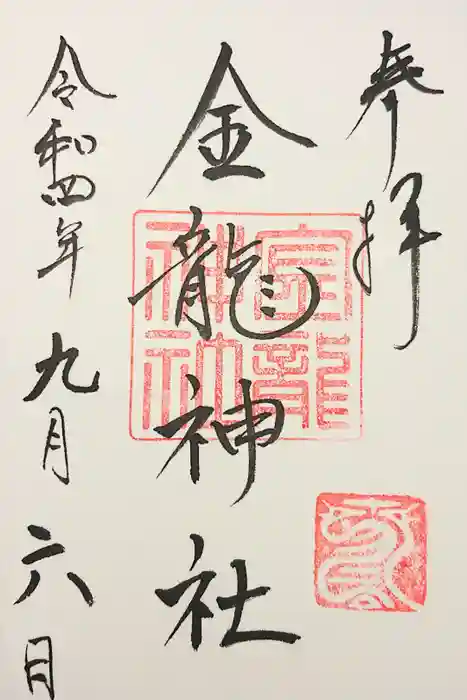 奉拝
金龍神社
令和四年九月六日
金龍神社